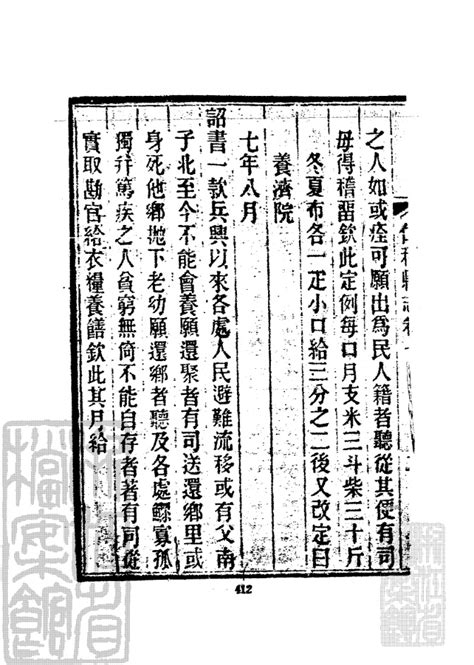 之人如或痊可願出爲民人籍者聽從其便有司
毋得稽畱欽此定例每口月支米三斗柴三十斤
冬夏布各一疋小口給三分之二後又改定曰
養濟院
七年八月
詔書一款兵興以來各處人民避難流移或有父南
子北至今不能會養願還聚者有司送還鄉里或
身死他鄉抛下老幼願還鄉者聽及各處鰥寡孤
獨幷篤疾之人貧窮無倚不能自存者著有司從
實取勘官給衣糧養饍欽此其月給
412
檔案館